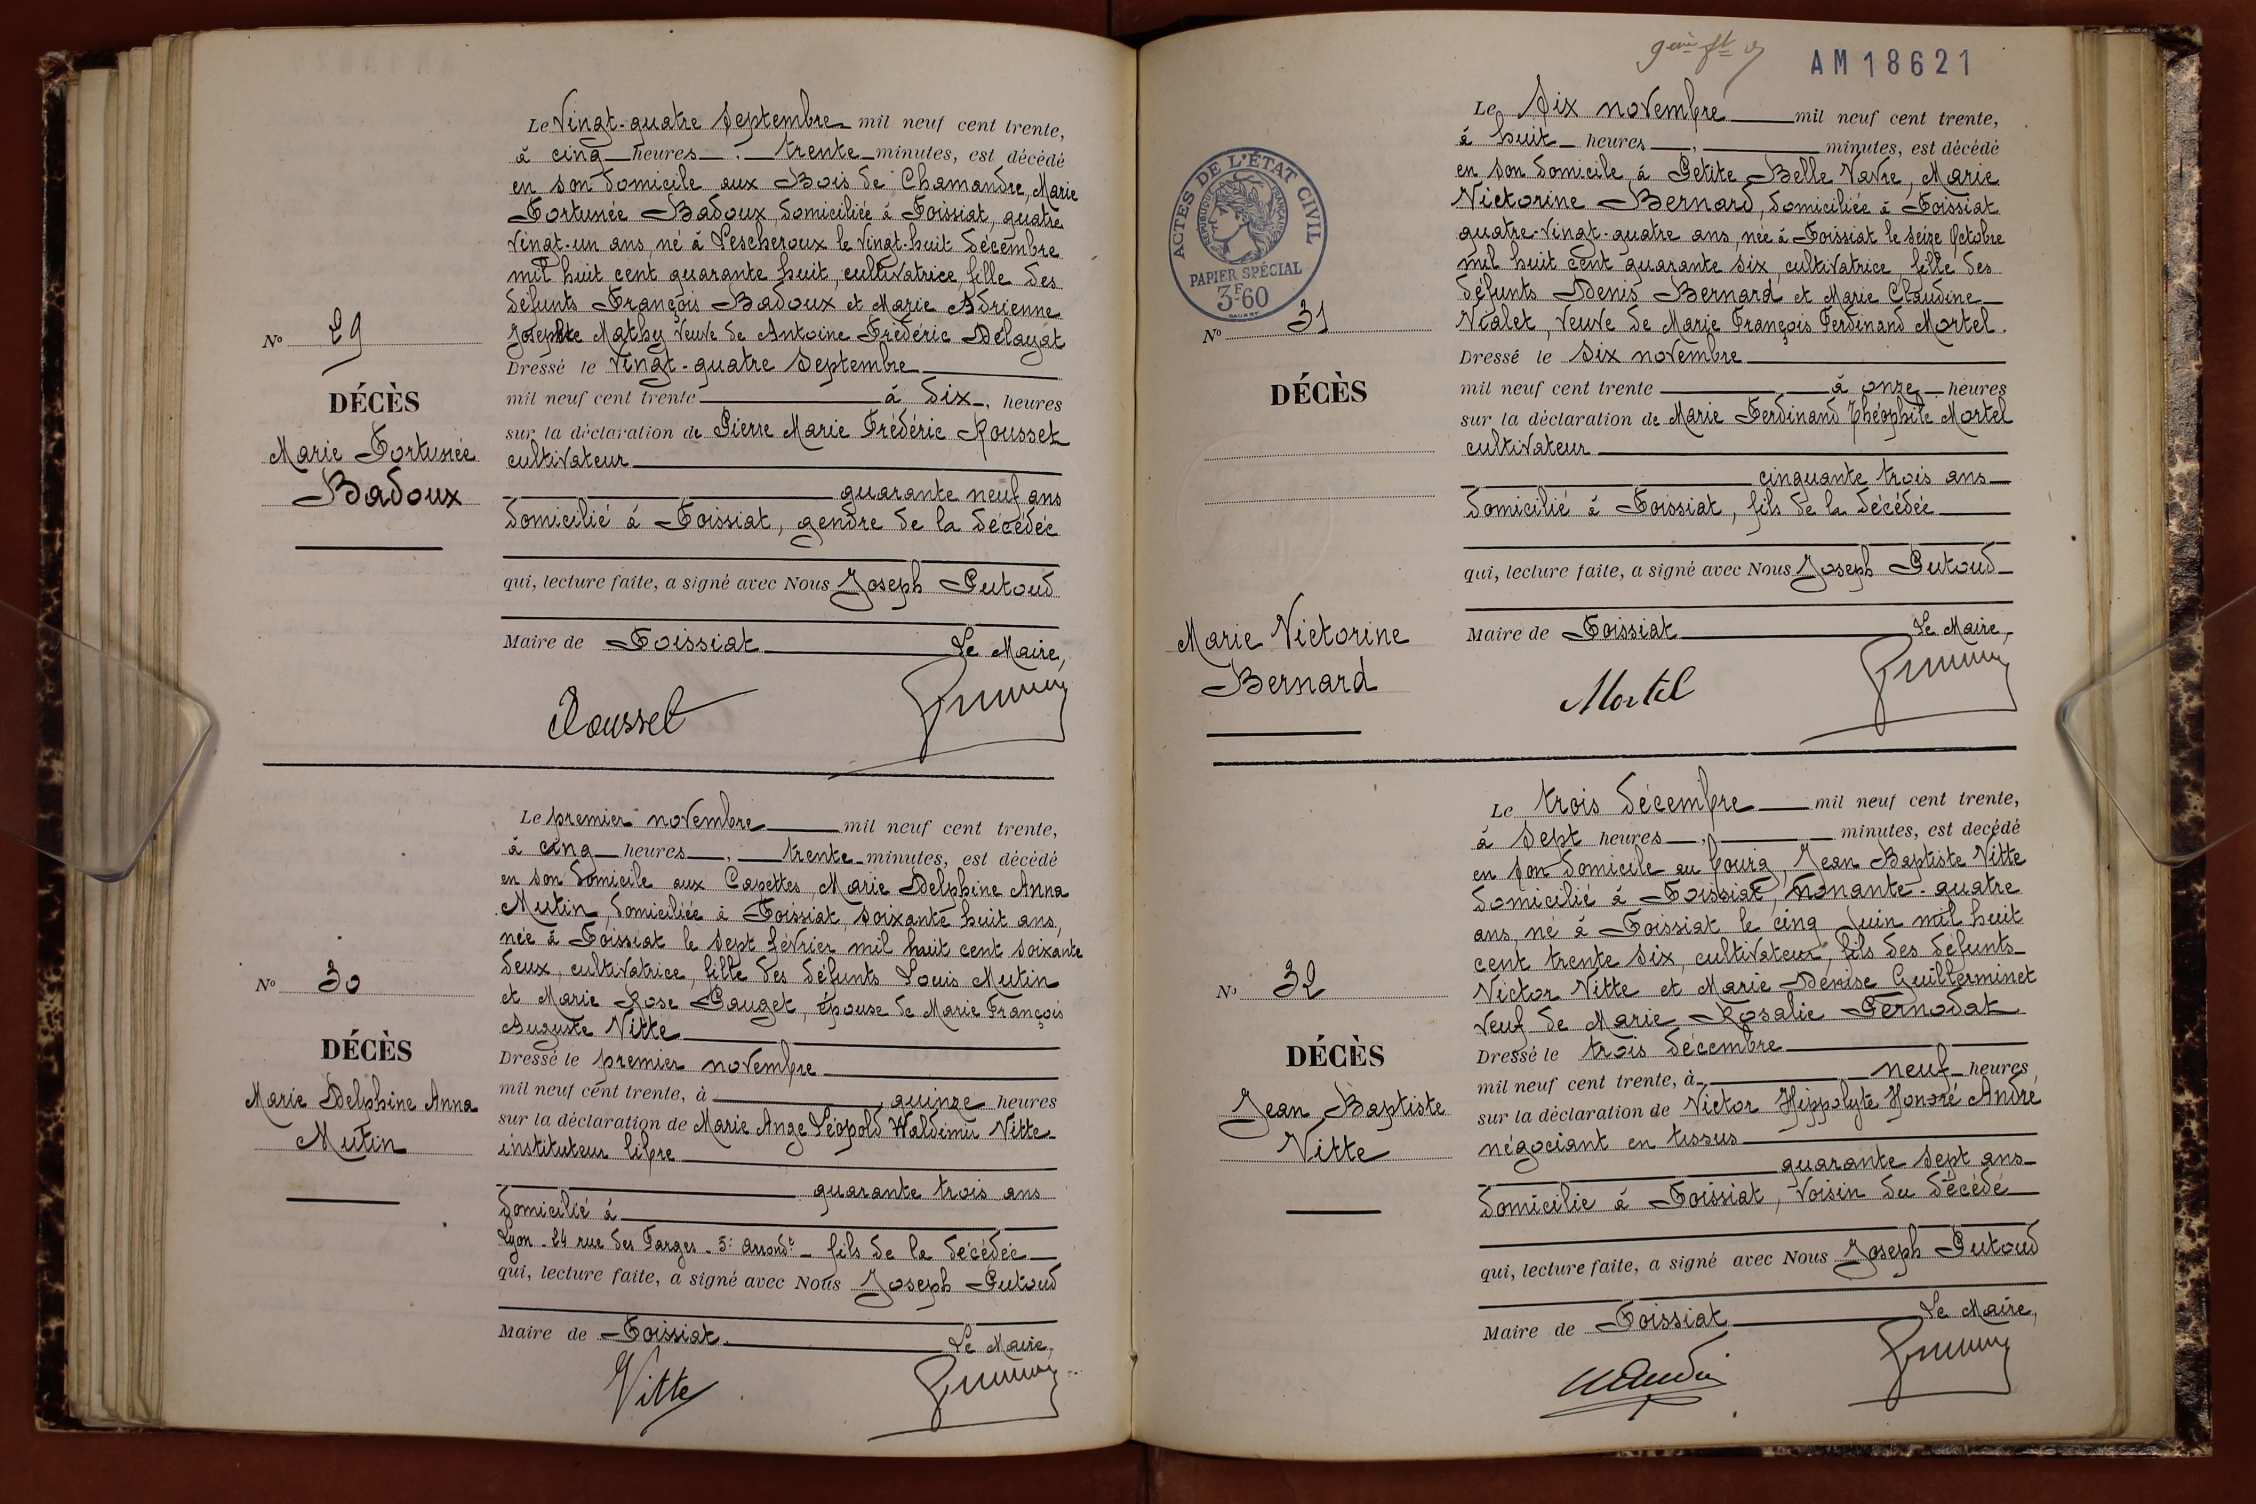 Le Vingt-quatre Septembre mil neuf cent trente,
à cinq heures trente minutes, est décédé
en son domicile aux Bois de Chamandre, Marie
Fortunée Badoux, domiciliée à Foissiat, quatre
Vingt-un ans, né à Lescheroux le Vingt-huit décembre
mil huit cent quarante huit, cultivatrice, fille des
défunts François Badoux et Marie Adrienne
Josephte Mathy Veuve de Antoine Frédéric Délayat
Dressé le Vingt-quatre Septembre
mil neuf cent trente à dix heures
sur la déclaration de Pierre Marie Frédéric Rousset
cultivateur
quarante neuf ans
domicilié à Foissiat, gendre de la décédée
qui, lecture faite, a signé avec Nous Joseph Putoud
Maire de Foissiat Le Maire,
Rousset
No 29
DÉCÈS
Marie Fortunée
Badoux
Le premier novembre mil neuf cent trente,
à cinq heures trente minutes, est décédé
en son domicile aux Capettes, Marie Delphine Anna
Mutin, domiciliée à Foissiat, soixante huit ans,
née à Foissiat le sept février mil huit cent soixante
deux, cultivatrice, fille des défunts Louis Mutin
et Marie Rose Pauget, épouse de Marie François
Auguste Vitte
Dressé le premier novembre
mil neuf cent trente, à quinze heures
sur la déclaration de Marie Ange Léopold Waldimir Vitte
instituteur libre
quarante trois ans
domicilié à
Lyon - 24 rue des Farges - 5e arrondt - fils de la décédée
qui, lecture faite, a signé avec Nous Joseph Putoud
Maire de Foissiat Le Maire,
Vitte
No 30
DÉCÈS
Marie Delphine Anna
Mutin
AM18621
ACTES DE L'ÉTAT CIVIL
RÉPUBLIQUE FRANÇAISE
PAPIER SPÉCIAL
3F60
Le Six novembre mil neuf cent trente,
à huit heures minutes, est décédé
en son domicile à Petite Belle Vavre, Marie
Victorine Bernard, domiciliée à Foissiat
quatre-Vingt-quatre ans, née à Foissiat le seize Octobre
mil huit cent quarante six, cultivatrice, fille des
défunts Denis Bernard et Marie Claudine
Vialet, Veuve de Marie François Ferdinand Mortel.
Dressé le Six novembre
mil neuf cent trente à onze heures
sur la déclaration de Marie Ferdinand Théophile Mortel
cultivateur
cinquante trois ans
domicilié à Foissiat, fils de la décédée
qui, lecture faite, a signé avec Nous Joseph Putoud
Maire de Foissiat Le Maire,
Mortel
No 31
DÉCÈS
Marie Victorine
Bernard
Le trois décembre mil neuf cent trente,
à Sept heures minutes, est décédé
en son domicile au bourg, Jean Baptiste Vitte
domicilié à Foissiat, nonante-quatre
ans, né à Foissiat le cinq Juin mil huit
cent trente six, cultivateur, fils des défunts
Victor Vitte et Marie Denise Guillerminet
Veuf de Marie Rosalie Pernodat
Dressé le trois décembre
mil neuf cent trente, à neuf heures
sur la déclaration de Victor Hippolyte Honoré André
négociant en tissus
quarante sept ans
domicilié à Foissiat, Voisin du décédé
qui, lecture faite, a signé avec Nous Joseph Putoud
Maire de Foissiat Le Maire,
No 32
DÉCÈS
Jean Baptiste
Vitte